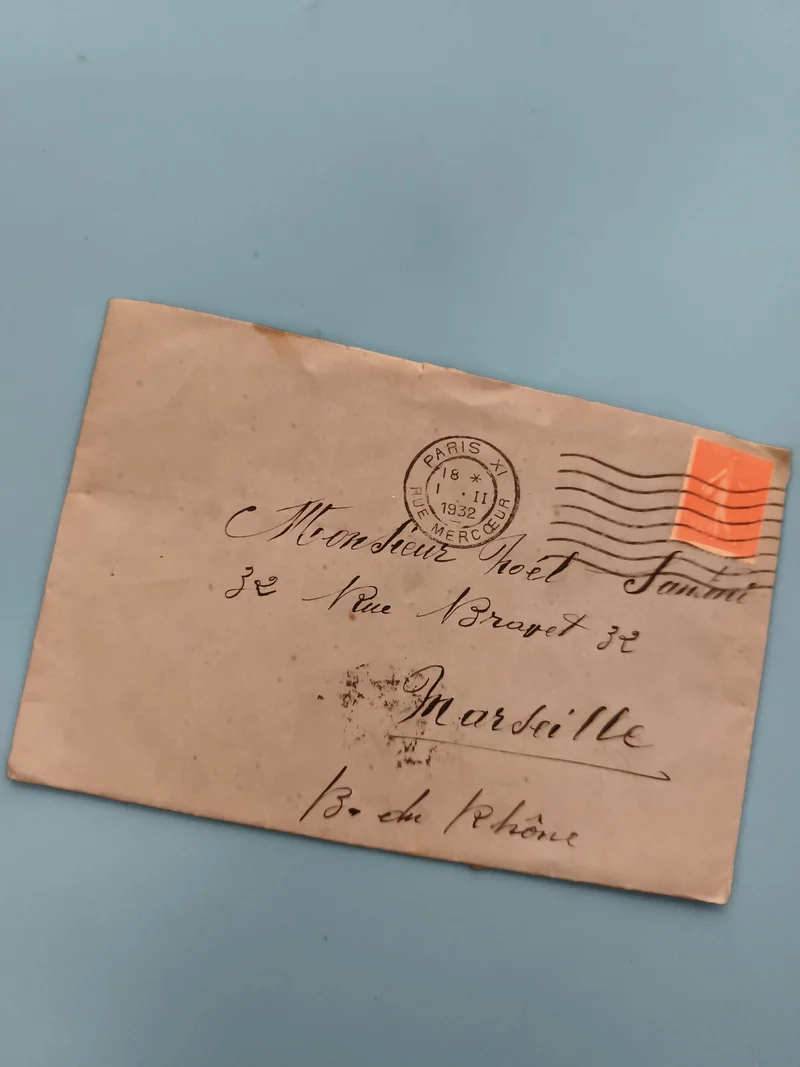 PARIS XI
18 *
1 . II
1932
RUE MERCŒUR
Monsieur Noël
32 Rue Bravet 32
Marseille
B. du Rhône